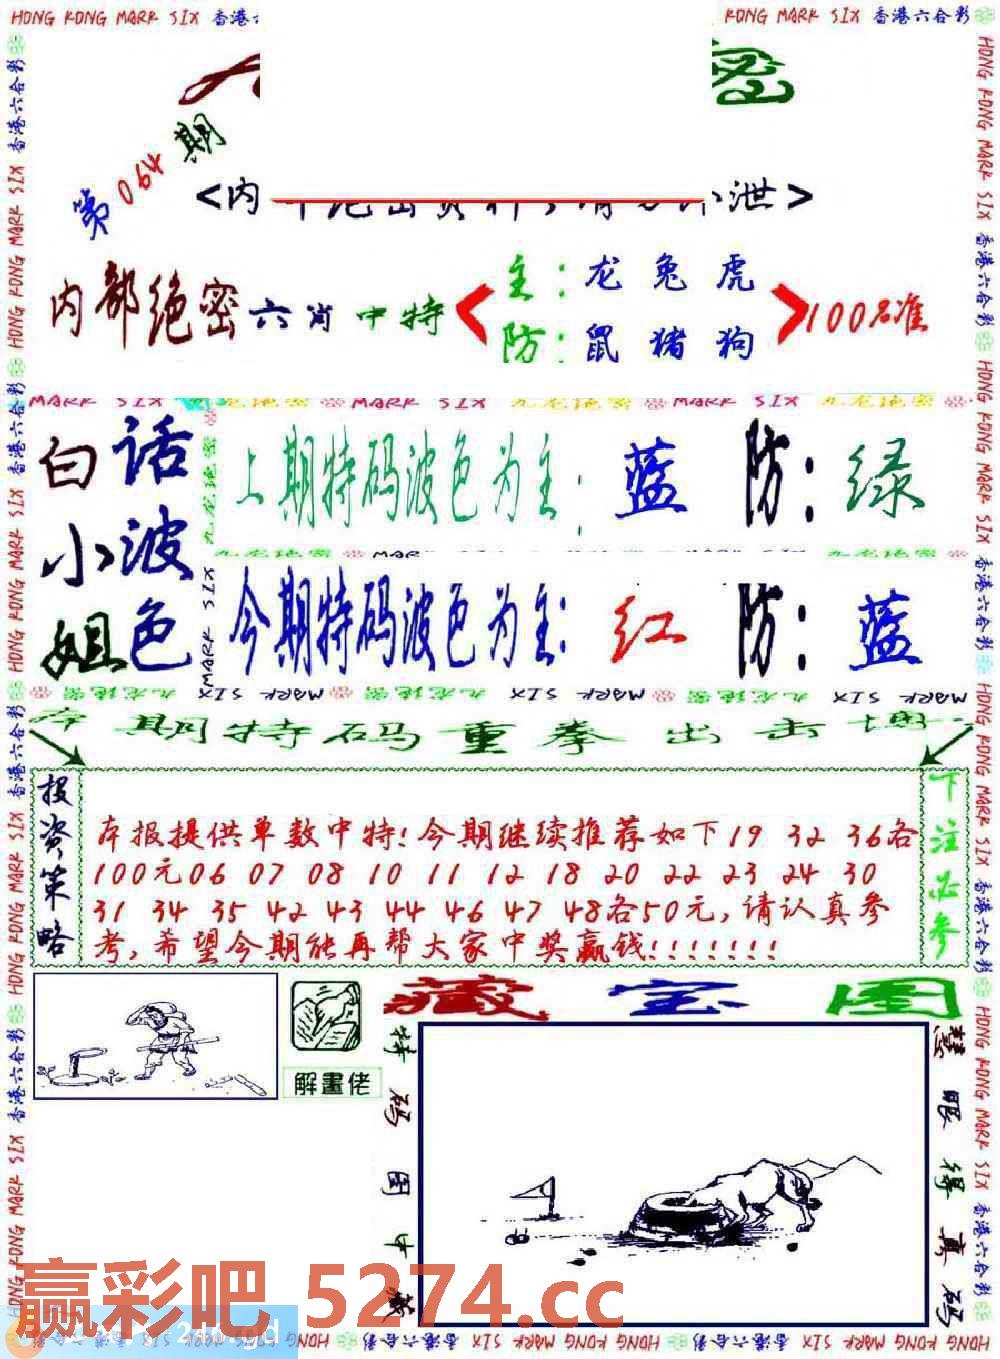 HONG KONG MARK SIX 香港六合彩
KONG MARK SIX 香港六合彩
密
第064期
<内
泄>
内部绝密六肖中特
主:龙兔虎
防:鼠猪狗
100%准
MARK SIX 九龙绝密 MARK SIX 九龙绝密 MARK SIX 九龙绝密
白小姐
话波色
上期特码波色为主:蓝 防:绿
今期特码波色为主:红 防:蓝
本期特码重拳出击
投资策略
本报提供单数中特!今期继续推荐如下19 32 36各
100元06 07 08 10 11 12 18 20 22 23 24 30
31 34 35 42 43 44 46 47 48各50元,请认真参
考,希望今期能再帮大家中奖赢钱!!!!!!!
下注必参
解畫佬
藏宝图
特码图中藏
慧眼得真码
赢彩吧 5274.cc
HONG KONG MARK SIX 香港六合彩